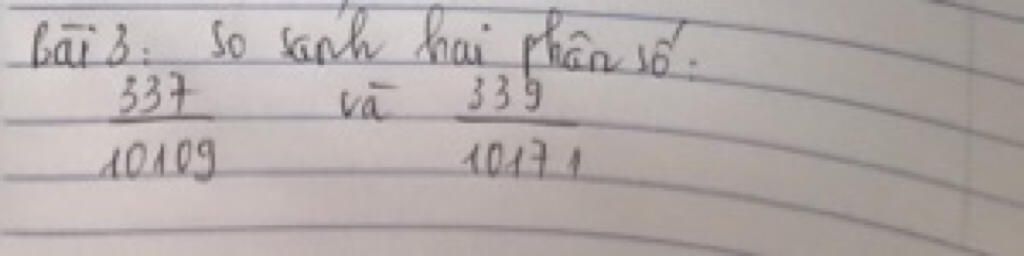 Bài 3: So sánh hai phân số:
337 và 339
10109 10171